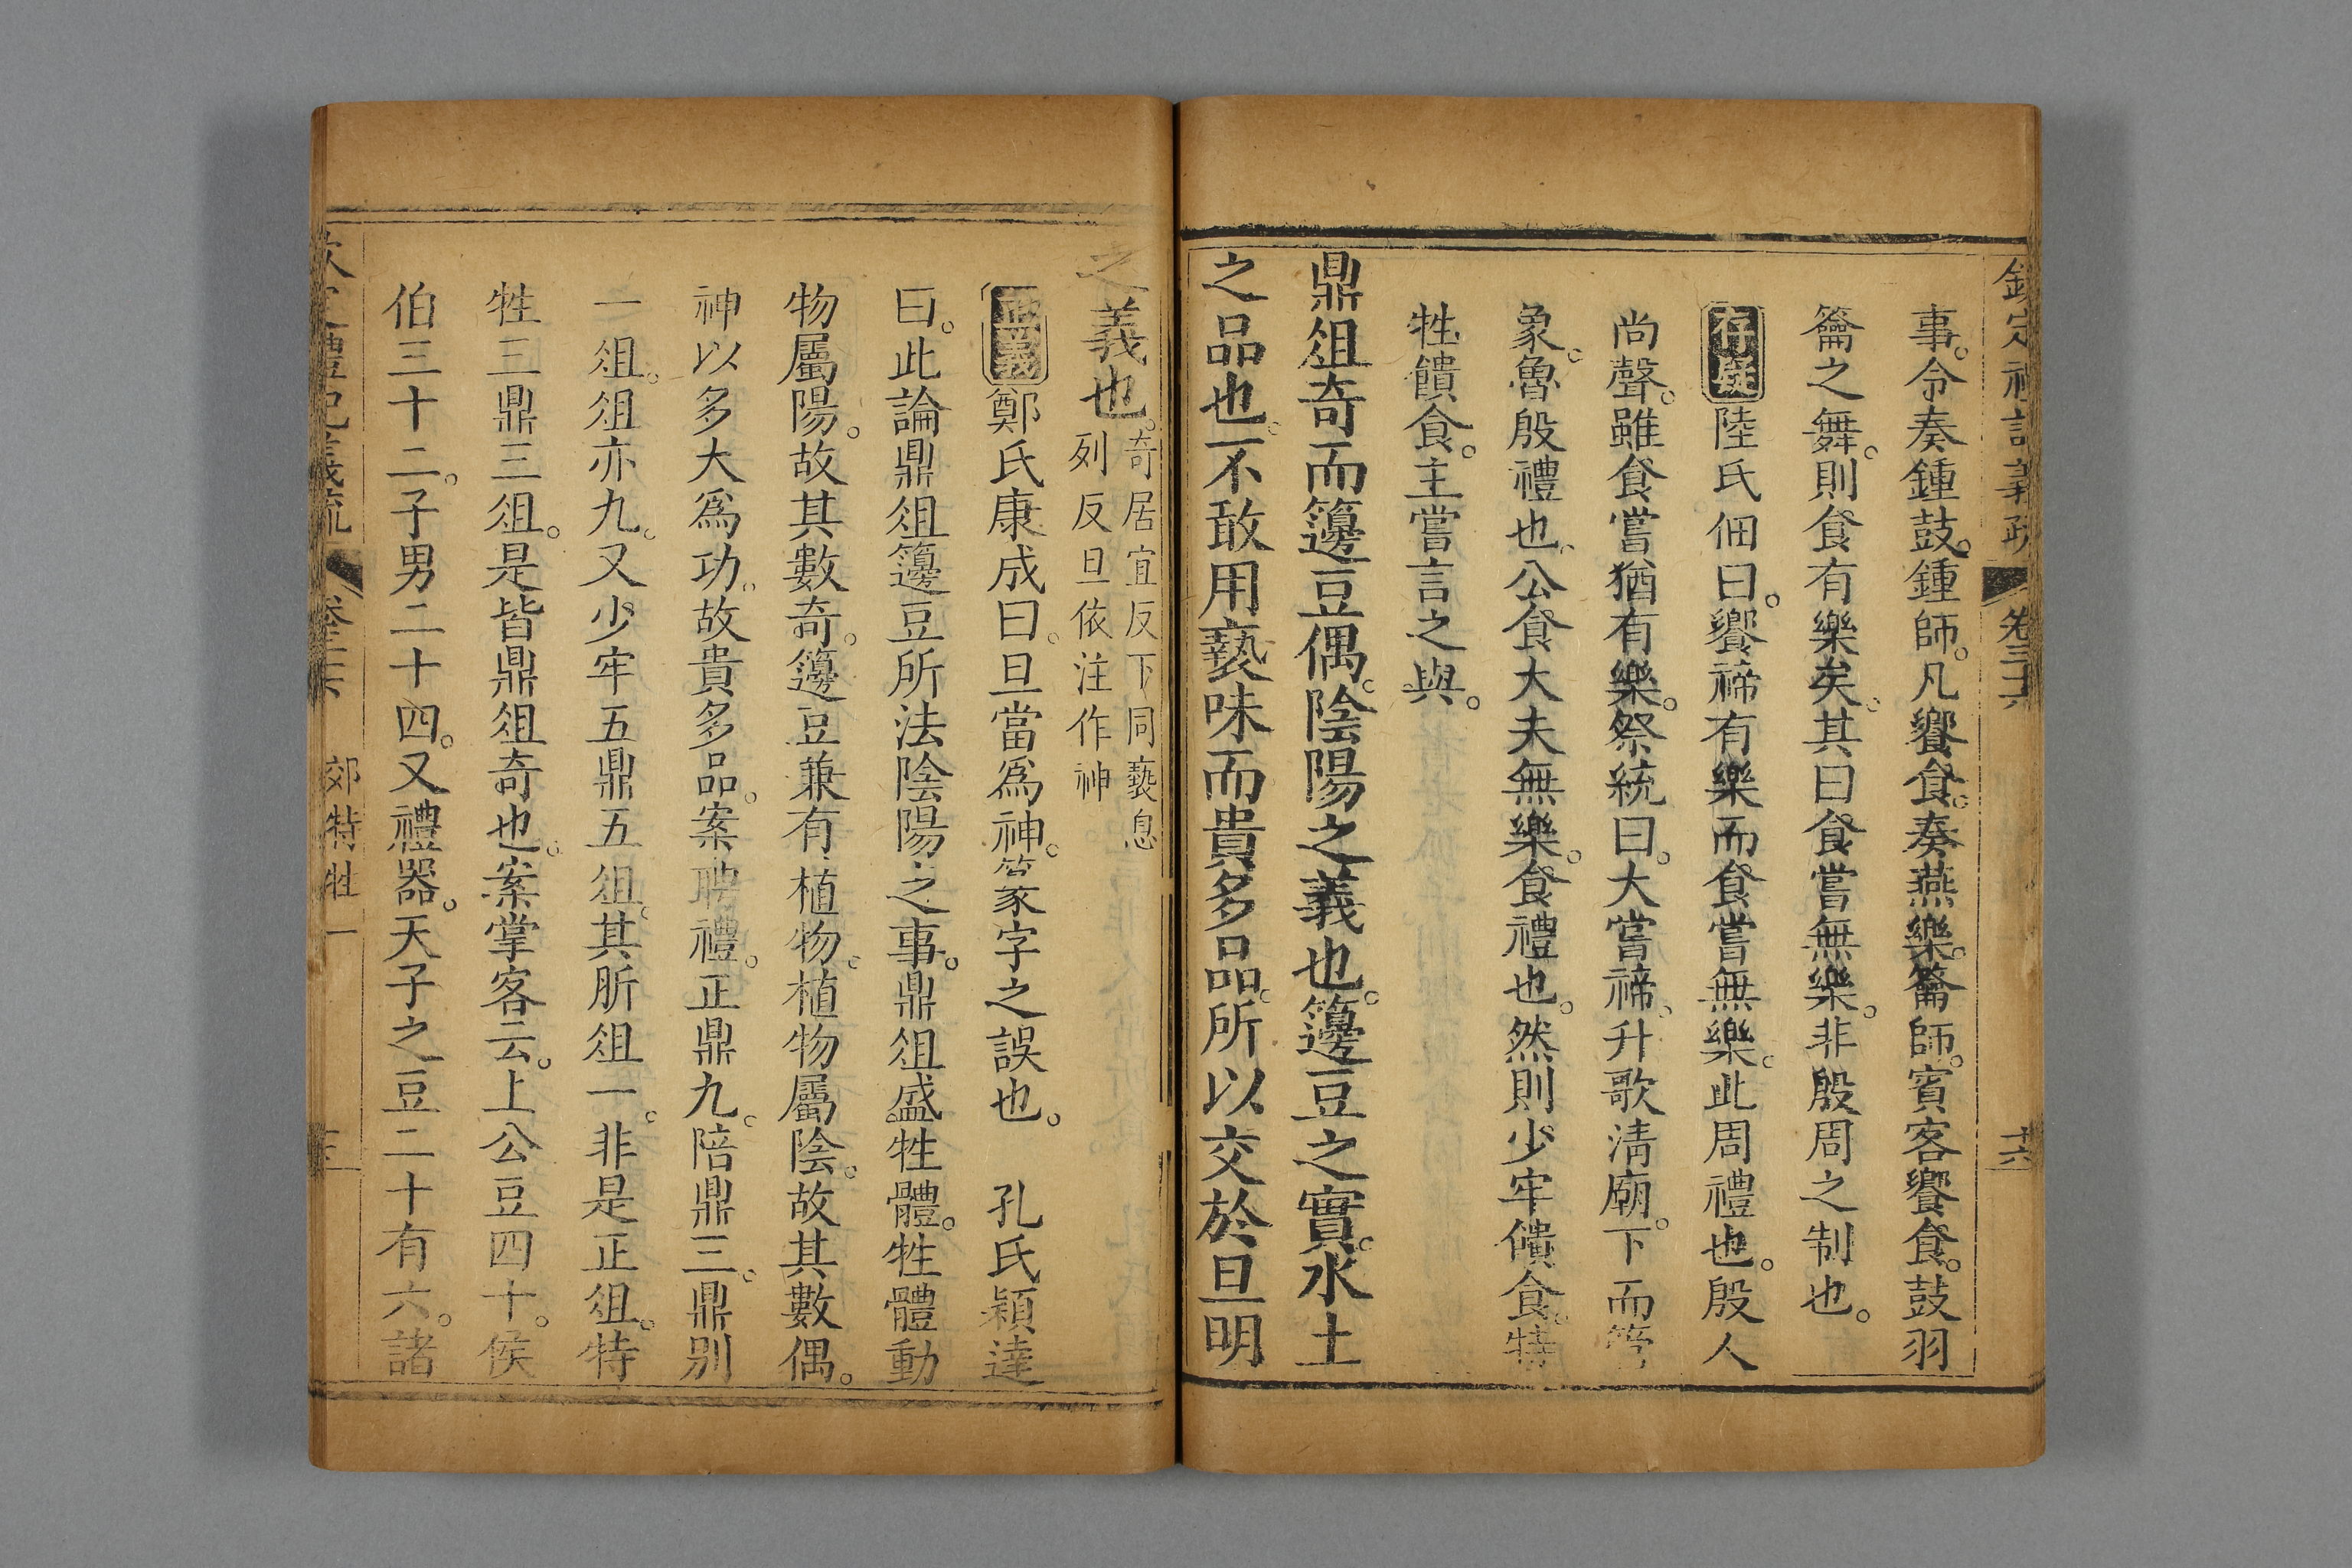 欽定禮記義疏 卷三十六 十六
事。令奏鍾鼓。鍾師。凡饗食。奏燕樂。籥師。賓客饗食。鼓羽
籥之舞。則食有樂矣。其曰食嘗無樂。非殷周之制也。
存疑陸氏佃曰。饗禘有樂而食嘗無樂。此周禮也。殷人
尚聲。雖食嘗猶有樂。祭統曰。大嘗禘。升歌淸廟。下而管
象。魯殷禮也。公食大夫無樂。食禮也。然則少牢饋食。特
牲饋食。主嘗言之與。
鼎俎奇而籩豆偶。陰陽之義也。籩豆之實。水土
之品也。不敢用褻味而貴多品。所以交於旦明
之義也。奇居宜反下同褻息
列反旦依注作神
正義鄭氏康成曰。旦當爲神。篆字之誤也。 孔氏穎達
曰。此論鼎俎籩豆所法陰陽之事。鼎俎盛牲體。牲體動
物屬陽。故其數奇。籩豆兼有植物。植物屬陰。故其數偶。
神以多大爲功。故貴多品。案聘禮。正鼎九。陪鼎三。鼎別
一俎。俎亦九。又少牢五鼎五俎。其肵俎一。非是正俎。特
牲三鼎三俎。是皆鼎俎奇也。案掌客云。上公豆四十。侯
伯三十二。子男二十四。又禮器。天子之豆二十有六。諸
欽定禮記義疏 卷三十六 郊特牲一